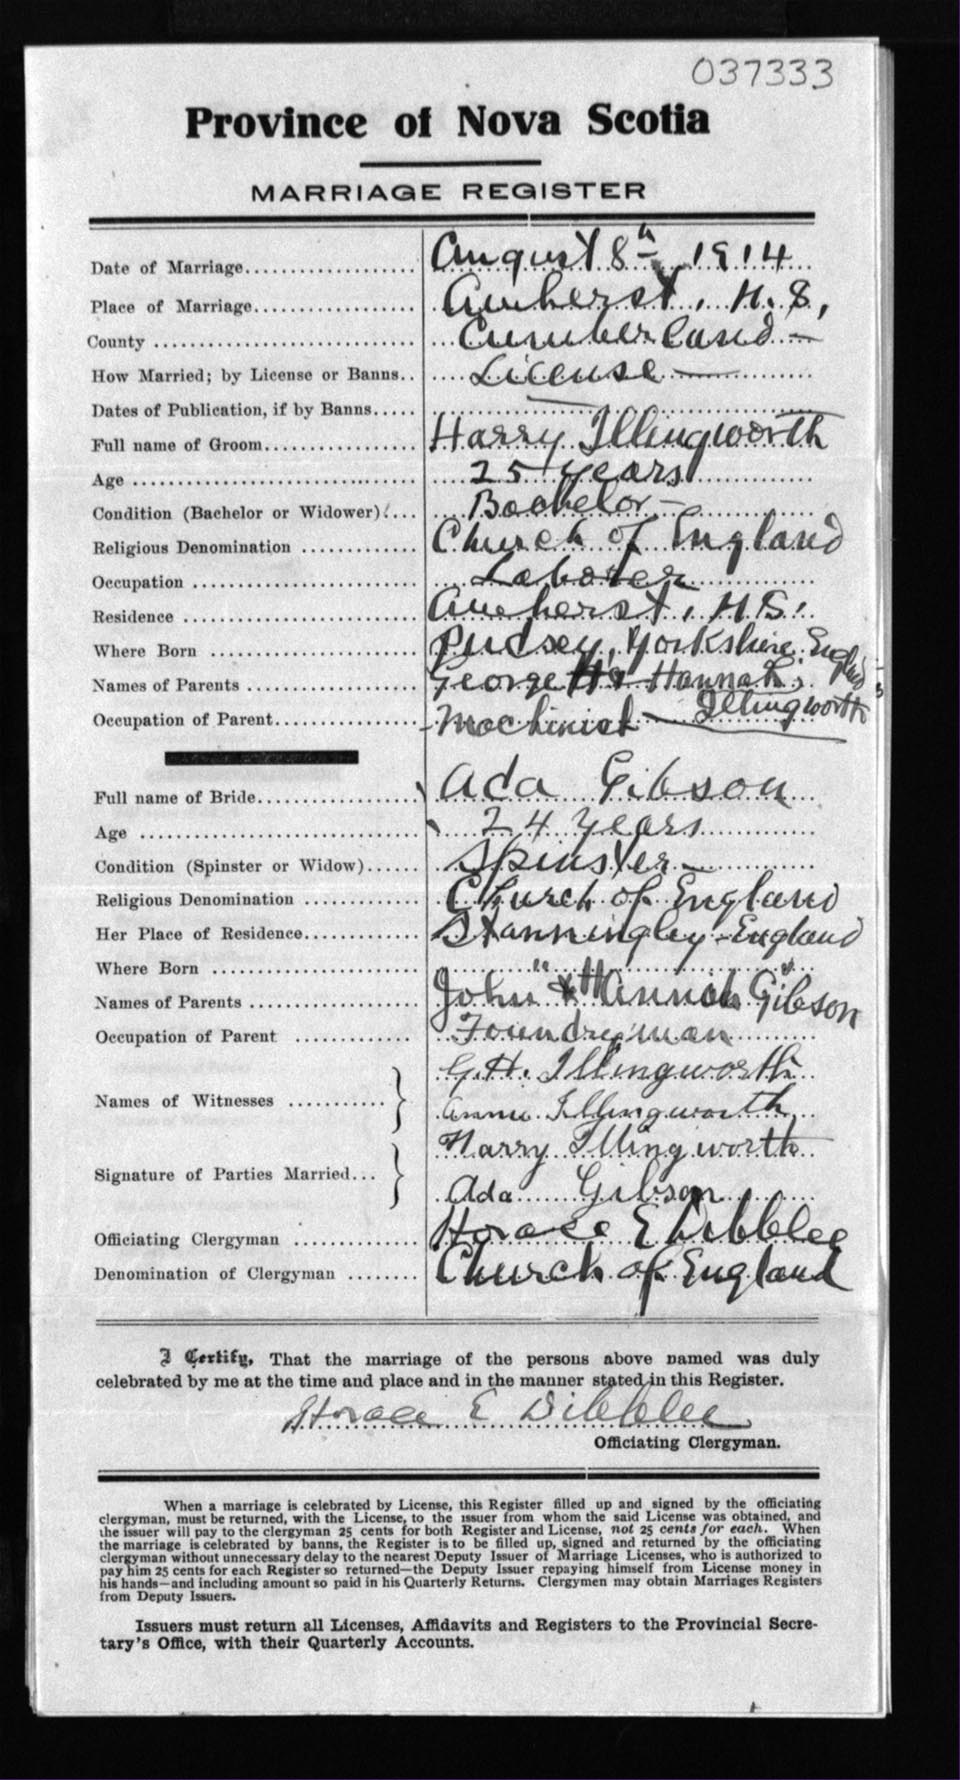 037333
Province of Nova Scotia
MARRIAGE REGISTER
Date of Marriage.................... August 8th 1914
Place of Marriage................... Amherst, N.S,
County ............................. Cumberland –
How Married; by License or Banns.. License —
Dates of Publication, if by Banns..... —
Full name of Groom.................. Harry Illingworth
Age ................................ 25 years
Condition (Bachelor or Widower).... Bachelor –
Religious Denomination ............. Church of England
Occupation ......................... Laborer
Residence .......................... Amherst, N.S.
Where Born ......................... Pudsey, Yorkshire, England
Names of Parents ................... George H & Hannah Illingworth
Occupation of Parent................ Machinist —
Full name of Bride.................. Ada Gibson
Age ................................ 24 years
Condition (Spinster or Widow)...... Spinster –
Religious Denomination ............. Church of England
Her Place of Residence.............. Stanningley - England
Where Born ......................... " "
Names of Parents ................... John & Hannah Gibson
Occupation of Parent ............... Foundryman
Names of Witnesses ............ } G.H. Illingworth
Annie Illingworth
Signature of Parties Married... } Harry Illingworth
Ada Gibson
Officiating Clergyman .............. Horace E Dibblee
Denomination of Clergyman ........ Church of England
I Certify, That the marriage of the persons above named was duly
celebrated by me at the time and place and in the manner stated in this Register.
Horace E Dibblee
Officiating Clergyman.
When a marriage is celebrated by License, this Register filled up and signed by the officiating
clergyman, must be returned, with the License, to the issuer from whom the said License was obtained, and
the issuer will pay to the clergyman 25 cents for both Register and License, not 25 cents for each. When
the marriage is celebrated by banns, the Register is to be filled up, signed and returned by the officiating
clergyman without unnecessary delay to the nearest Deputy Issuer of Marriage Licenses, who is authorized to
pay him 25 cents for each Register so returned—the Deputy Issuer repaying himself from License money in
his hands—and including amount so paid in his Quarterly Returns. Clergymen may obtain Marriages Registers
from Deputy Issuers.
Issuers must return all Licenses, Affidavits and Registers to the Provincial Secre-
tary's Office, with their Quarterly Accounts.